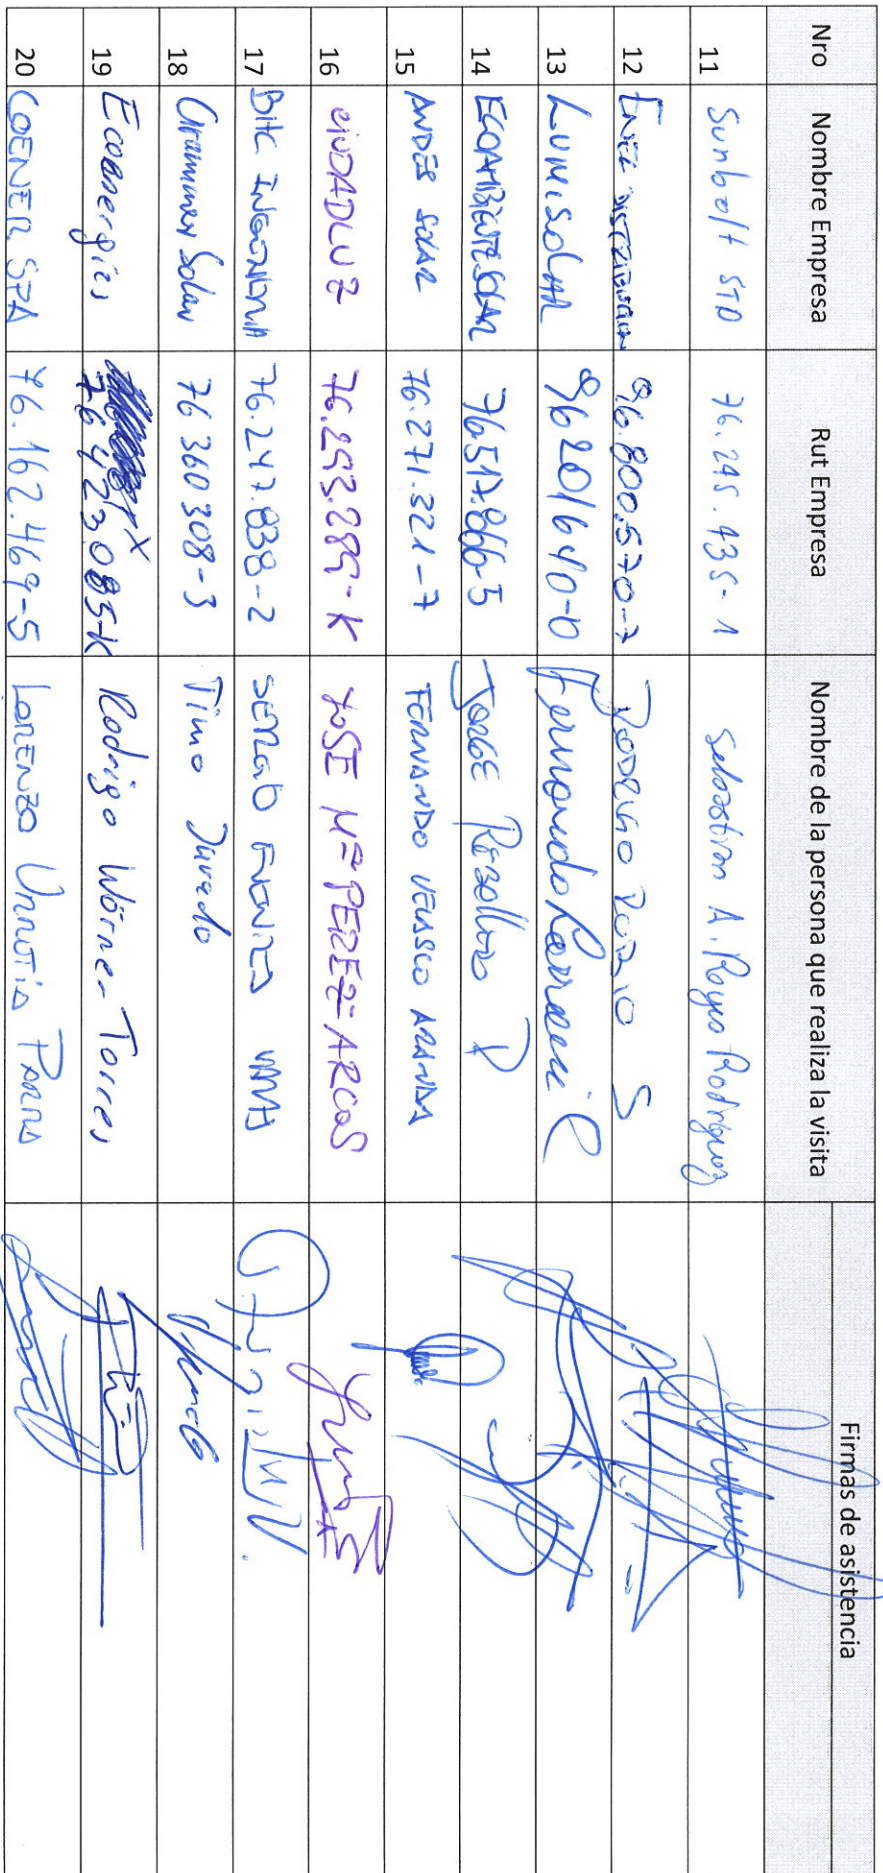 Nro Nombre Empresa Rut Empresa Nombre de la persona que realiza la visita Firmas de asistencia
11 Sunbolt STD 76.245.435-1 Sebastian A. Reyes Rodriguez
12 ENEL DISTRIBUCION 96.800.570-7 RODRIGO S
13 LUMISOLAR 96201640-0 Fernando
14 ECOAMBIENTESOLAR 76.517.866-5 JORGE P
15 ANDES SOLAR 76.271.321-7 FERNANDO VELASCO ARANDA
16 CIUDADLUZ 76.253.289-K JOSE Mª PEREZ-ARCOS
17 BHC INGENIERIA 76.247.838-2 SERGIO
18 Grammer Solar 76 360 308-3 Timo Jurado
19 Ecoenergias 76423085-K Rodrigo Wörner Torres
20 COENER SPA 76.162.469-5 LORENZO URRUTIA PARRA